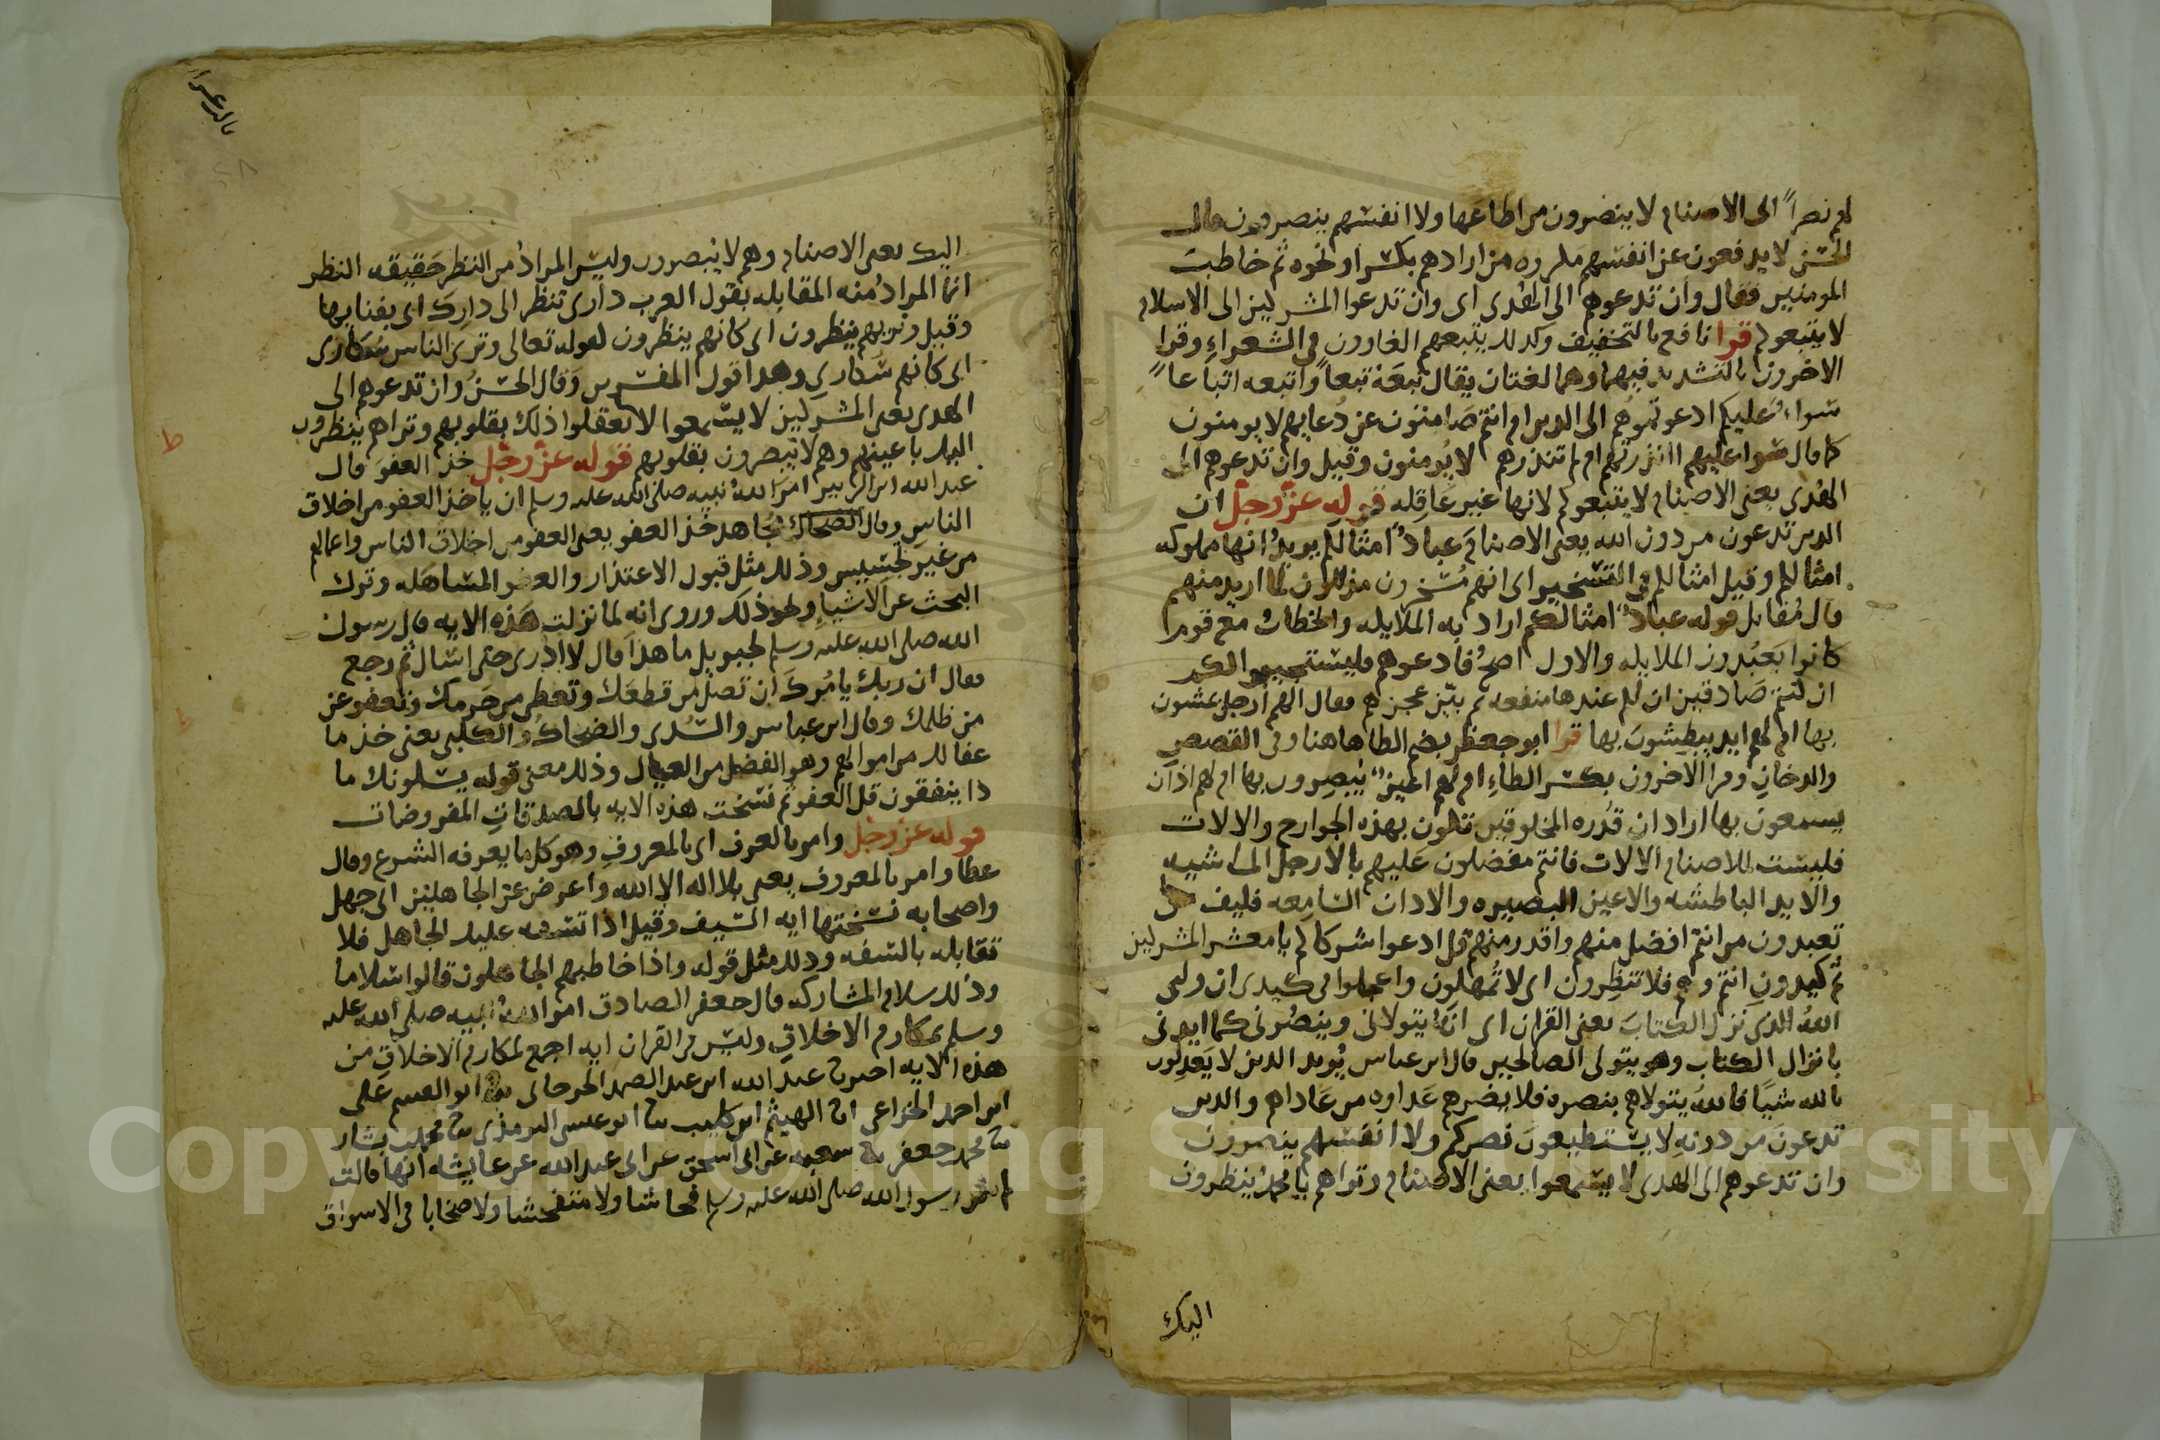 لهم نصرا الى الاصنام لا ينصرون من اطاعها ولا انفسهم ينصرون قال
الحسن لا يدفعون عن انفسهم مكروه من ارادهم بكسر او نحوه ثم خاطب
المومنين فقال وان تدعوهم الى الهدى اى وان تدعوا المشركين الى الاسلام
لا يتبعوكم قرا نافع بالتخفيف وكذلك يتبعهم الغاوون في الشعراء وقرا
الاخرون بالتشديد فيهما وهما لغتان يقال تبعه تبعاً واتبعه اتباعاً
سواء عليكم ادعوتموهم الى الدين ام انتم صامتون عن دعايهم لا يومنون
كما قال سوا عليهم اانذرتهم ام لم تنذرهم لا يُومنون وقيل وان تدعوهم الى
الهدى يعنى الاصنام لا يتبعوكم لانها غير عاقله قوله عزّ وجلّ ان
الدين تدعون من دون الله يعنى الاصنام عبادٌ امثالكم يريد انها مملوكه
امثالكم وقيل امثالكم في التسخير اى انهم مُسخرون مذللون لما اريد منهم
قال مُقاتل قوله عبادٌ امثالكم اراد به الملايكه والخطاب مع قوم
كانوا يَعبُدون الملايكه والاول اصحُ فادعوهم فليستجيبوا لكم
ان كنتم صادقين ان لكم عندها منفعه ثم بيّن عجزهم فقال الهم ارجل يمشون
بها ام لهم ايد يبطِشونَ بها قرا ابو جعفر بضم الطا هاهنا وفى القصصِ
والدخانِ وقرا الاخرون بكسر الطاءِ ام لهم اعين يُبصِرون بها ام لهم اذان
يسمعونَ بها اراد ان قُدره المخلوقين تكون بهذه الجوارح والالات
فليست للاصنام الالات فانتم مفضلون عَليهم بالارجل الماشيه
والايد الباطشه والاعين البصيره والادان السّامعه فكيف
تعبدون من انتم افضل منهم واقدر منهم قل ادعوا شركاكم يا معشر المشركين
ثم كيدونِ انتم وهم فلا تنظِرون اى لا تُمهلون واعجلوا فى كيدى ان وليى
اللهُ الذى نزل الكتابَ يعنى القران اى انه يتولانى وينصُرنى كما ايدنى
بانزال الكتاب وهو يتولى الصالحين قال ابن عباس يُريد الدين لا يَعدِلون
بالله شيئاً فاللهُ يتولاهم بنصره فلا يضرهم عَداوه من عَاداهم والدين
تدعونَ من دونهِ لا يستطيعونَ نصركم ولا انفسهم ينصرون
وان تدعوهم الى الهدى لا يسمعوا يعنى الاصنام وتراهم يا محمدُ ينظرون
اليك
اليك يعنى الاصنام وهم لا يبصرون وليسَ المرادُ من النظر حَقيقه النظر
انما المرادُ منه المقابله بقول العرب دارى تنظر الى دارِكَ اى بفنايها
وقيل وتريهم ينظرون اى كانهم ينظرون لقوله تعالى وترى الناس سُكارى
اى كانهم سُكارى وهدا قول المفسرين وَقال الحسنُ وان تدعوهم الى
الهدى يعنى المشركين لا يسمعوا لا يعقلوا ذلك بقلوبهم وتراهم ينظرون
اليك باعينهم وهم لا يبصرون بقلوبهم قوله عزّ وجلّ خذ العفوَ قال
عبد الله ابن الزبير امرَ اللهُ نبيه صلى الله عليه وسلم ان ياخذ العفو من اخلاق
الناسِ وقال مجاهد خُذ العفو يعنى العفو من اخلاق الناس واعمالهم
من غير تجسِيس وذلك مثل قبول الاعتذار والعفو المساهَله وترك
البحث عن الاشياء ونحو ذلك وروى انه لما نزلت هَذه الايه قال رسول
الله صلى الله عليه وسلم لجبريل ما هذا قال لا ادرى حتى اسال ثم رجع
فقال ان ربك يامُركَ ان تصلَ من قطعَك وتعطى من حَرمك وتعفو عن
من ظلمك وقال ابن عباس والسُدى والضحاك والكلبى يعنى خذ ما
عفا لك من اموالهم وهو الفضل من العيال وذلك معنى قوله يسئلونك ما
ذا ينفقون قل العفو ثم نسُخت هذه الايه بالصدقاتِ المفروضات
قوله عزّ وجلّ وامر بالعرف اى بالمعروفِ وهو كل ما يعرفه الشرع وقال
عطا وامر بالمعروف يعنى بلا اله الا الله واعرض عن الجاهلين ابى جهل
واصحابه نسَختها ايه السّيف وقيل اذا تسَفه عليك الجاهل فلا
تقابله بالسَفه وذلك مثل قوله واذا خاطبهم الجاهلون قالوا سَلاما
وذلك سلام المشاركه قال جعفر الصادق امر اللهُ نبيه صلى الله عليه
وسلم بمكارم الاخلاق وليسَ فى القران ايه اجمع لمكارم الاخلاق من
هذه الايه اخبرنا عبد الله ابن عبد الصمد الجرجانى ابو القسم على
ابن احمد الخزاعى انا الهيثم ابن كليب ابو عيسى الترمذى محمد بن بشار
محمد جعفر شعبه عن ابى اسحق عن ابى عبد الله عن عايشه انها قالت
لم يكن رسول الله صلى الله عليه وسلم فحاشا ولا متفحشا ولا صخابا فى الاسواق
ط
ط
ط
Copyright © King Saud University